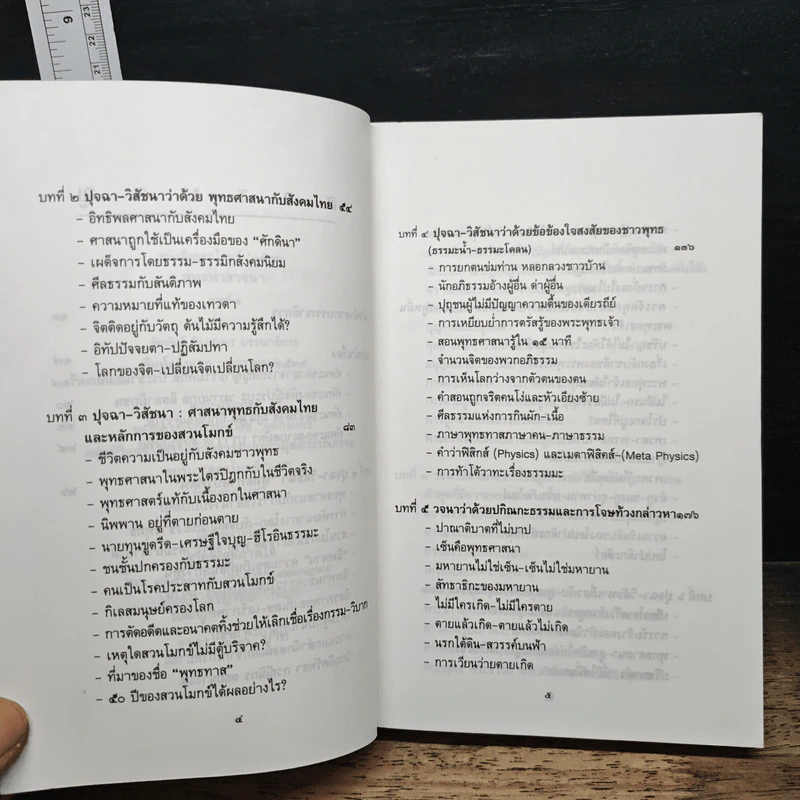 9
23
22
21
บทที่ ๒ ปุจฉา-วิสัชนาว่าด้วย พุทธศาสนากับสังคมไทย ๕๔
- อิทธิพลศาสนากับสังคมไทย
- ศาสนาถูกใช้เป็นเครื่องมือของ “ศักดินา”
- เผด็จการโดยธรรม-ธรรมิกสังคมนิยม
- ศีลธรรมกับสันติภาพ
- ความหมายที่แท้ของเทวดา
- จิตติดอยู่กับวัตถุ ต้นไม้มีความรู้สึกได้?
- อิทัปปัจจยตา-ปฏิสัมปทา
- โลกของจิต-เปลี่ยนจิตเปลี่ยนโลก?
บทที่ ๓ ปุจฉา-วิสัชนา : ศาสนาพุทธกับสังคมไทย
และหลักการของสวนโมกข์ ๘๓
- ชีวิตความเป็นอยู่กับสังคมชาวพุทธ
- พุทธศาสนาในพระไตรปิฎกกับในชีวิตจริง
- พุทธศาสตร์แท้กับเนื้องอกในศาสนา
- นิพพาน อยู่ที่ตายก่อนตาย
- นายทุนขูดรีด-เศรษฐีใจบุญ-ฮีโรอินธรรมะ
- ชนชั้นปกครองกับธรรมะ
- คนเป็นโรคประสาทกับสวนโมกข์
- กิเลสมนุษย์ครองโลก
- การตัดอดีตและอนาคตทิ้งช่วยให้เลิกเชื่อเรื่องกรรม-วิบาก
- เหตุใดสวนโมกข์ไม่มีตู้บริจาค?
- ที่มาของชื่อ “พุทธทาส”
- ๕๐ ปีของสวนโมกข์ได้ผลอย่างไร?
๔
บทที่ ๔ ปุจฉา-วิสัชนาว่าด้วยข้อข้องใจสงสัยของชาวพุทธ
(ธรรมะน้ำ-ธรรมะโคลน) ๑๓๖
- การยกตนข่มท่าน หลอกลวงชาวบ้าน
- นักอภิธรรมอ้างผู้อื่น ด่าผู้อื่น
- ปุถุชนผู้ไม่มีปัญญาความตื้นของเดียรถีย์
- การเหยียบย่ำการตรัสรู้ของพระพุทธเจ้า
- สอนพุทธศาสนารู้ใน ๑๕ นาที
- จำนวนจิตของพวกอภิธรรม
- การเห็นโลกว่างจากตัวตนของตน
- คำสอนถูกจริตคนโง่และหัวเอียงซ้าย
- ศีลธรรมแห่งการกินผัก-เนื้อ
- ภาษาพุทธทาสภาษาคน-ภาษาธรรม
- คำว่าฟิสิกส์ (Physics) และเมตาฟิสิคส์-(Meta Physics)
- การท้าโต้วาทะเรื่องธรรมมะ
บทที่ ๕ วจนาว่าด้วยปกิณกะธรรมและการโจษท้วงกล่าวหา๑๗๖
- ปาณาติบาตที่ไม่บาป
- เซ็นคือพุทธศาสนา
- มหายานไม่ใช่เซ็น-เซ็นไม่ใช่มหายาน
- สัทธาธิกะของมหายาน
- ไม่มีใครเกิด-ไม่มีใครตาย
- ตายแล้วเกิด-ตายแล้วไม่เกิด
- นรกใต้ดิน-สวรรค์บนฟ้า
- การเวียนว่ายตายเกิด
๕